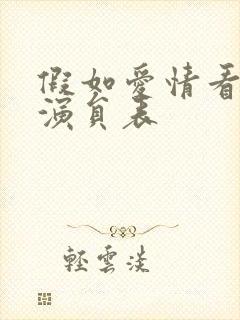 假如愛情看
演員表
輕雲淡